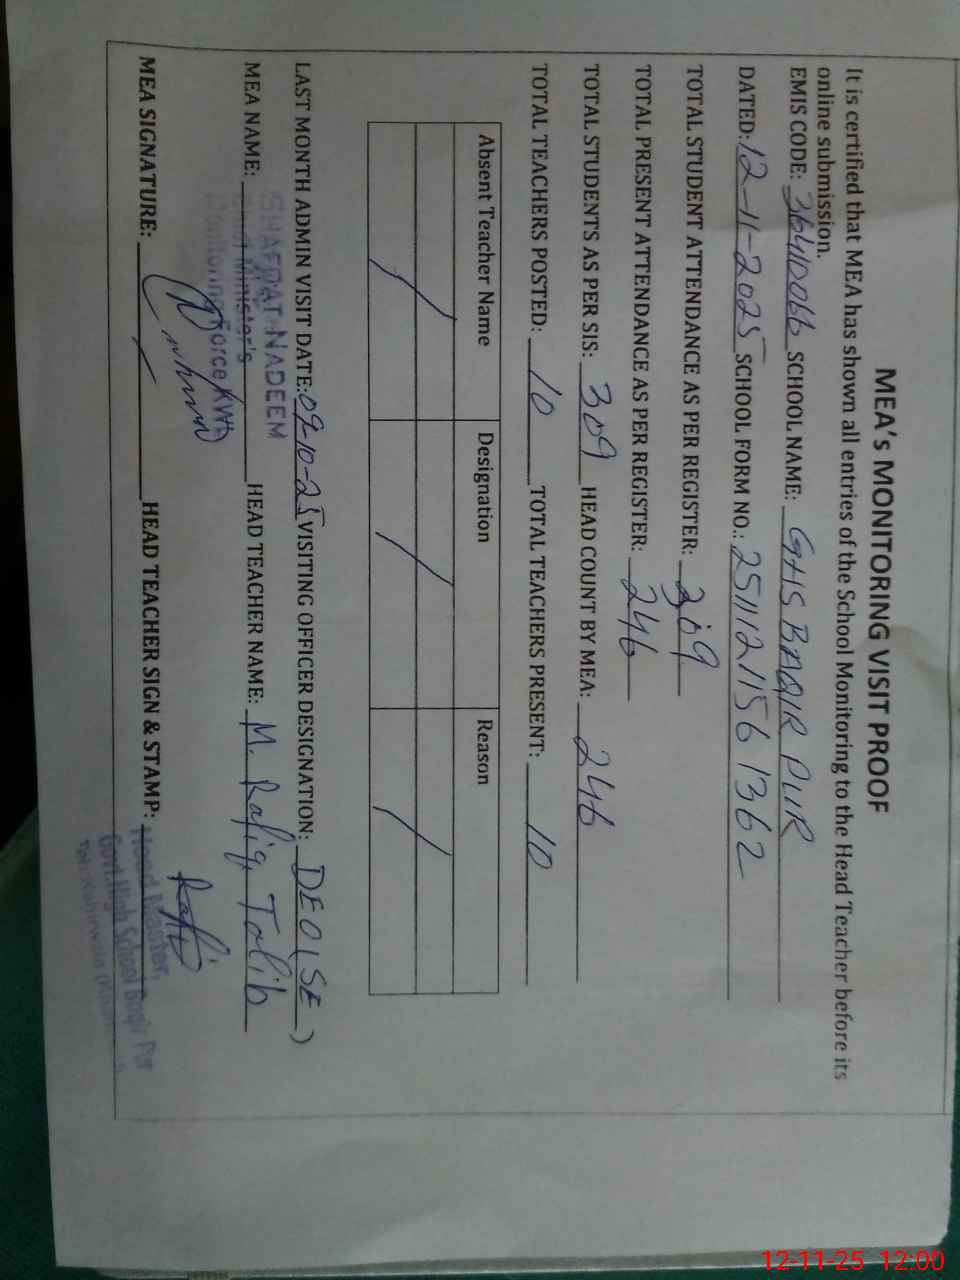 MEA's MONITORING VISIT PROOF
It is certified that MEA has shown all entries of the School Monitoring to the Head Teacher before its
online submission.
EMIS CODE: 36410066 SCHOOL NAME: GHS BAQIR PUR
DATED: 12-11-2025 SCHOOL FORM NO.: 2511121156 1362
TOTAL STUDENT ATTENDANCE AS PER REGISTER: 309
TOTAL PRESENT ATTENDANCE AS PER REGISTER: 246
TOTAL STUDENTS AS PER SIS: 309 HEAD COUNT BY MEA: 246
TOTAL TEACHERS POSTED: 10 TOTAL TEACHERS PRESENT: 10
Absent Teacher Name Designation Reason
LAST MONTH ADMIN VISIT DATE: 09-10-25 VISITING OFFICER DESIGNATION: DEO(SE)
MEA NAME: SHAFQAT NADEEM HEAD TEACHER NAME: M. Rafiq Talib
Chief Minister's
Monitoring Force KWL
MEA SIGNATURE: HEAD TEACHER SIGN & STAMP:
Head Master,
Govt. High School Baqir Pur
12-11-25 12:00